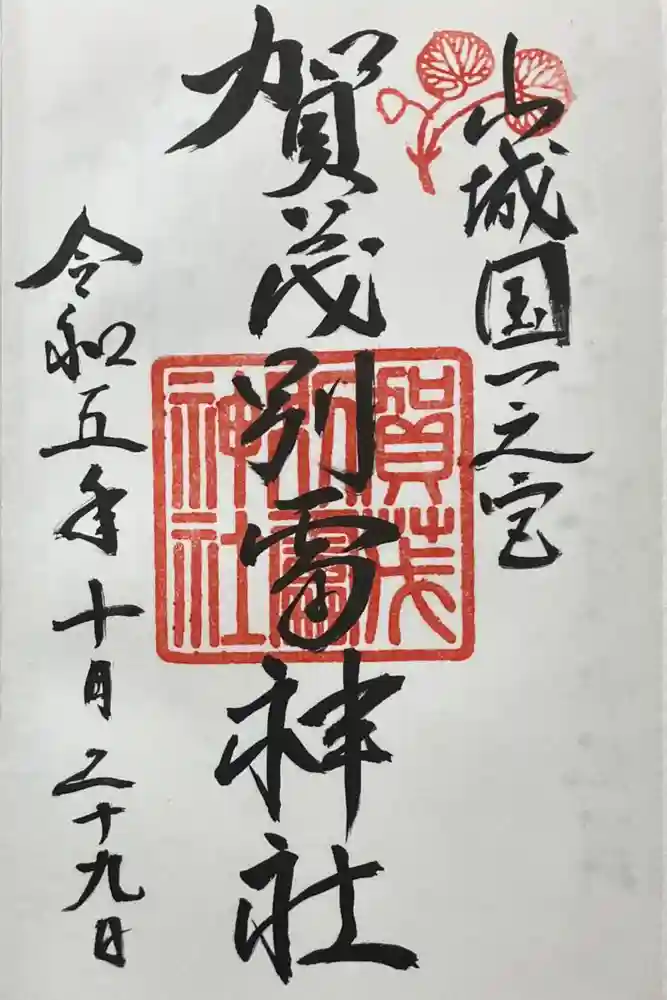 山城国一之宮
賀茂別雷神社
賀茂
別雷
神社
令和五年十月二十九日